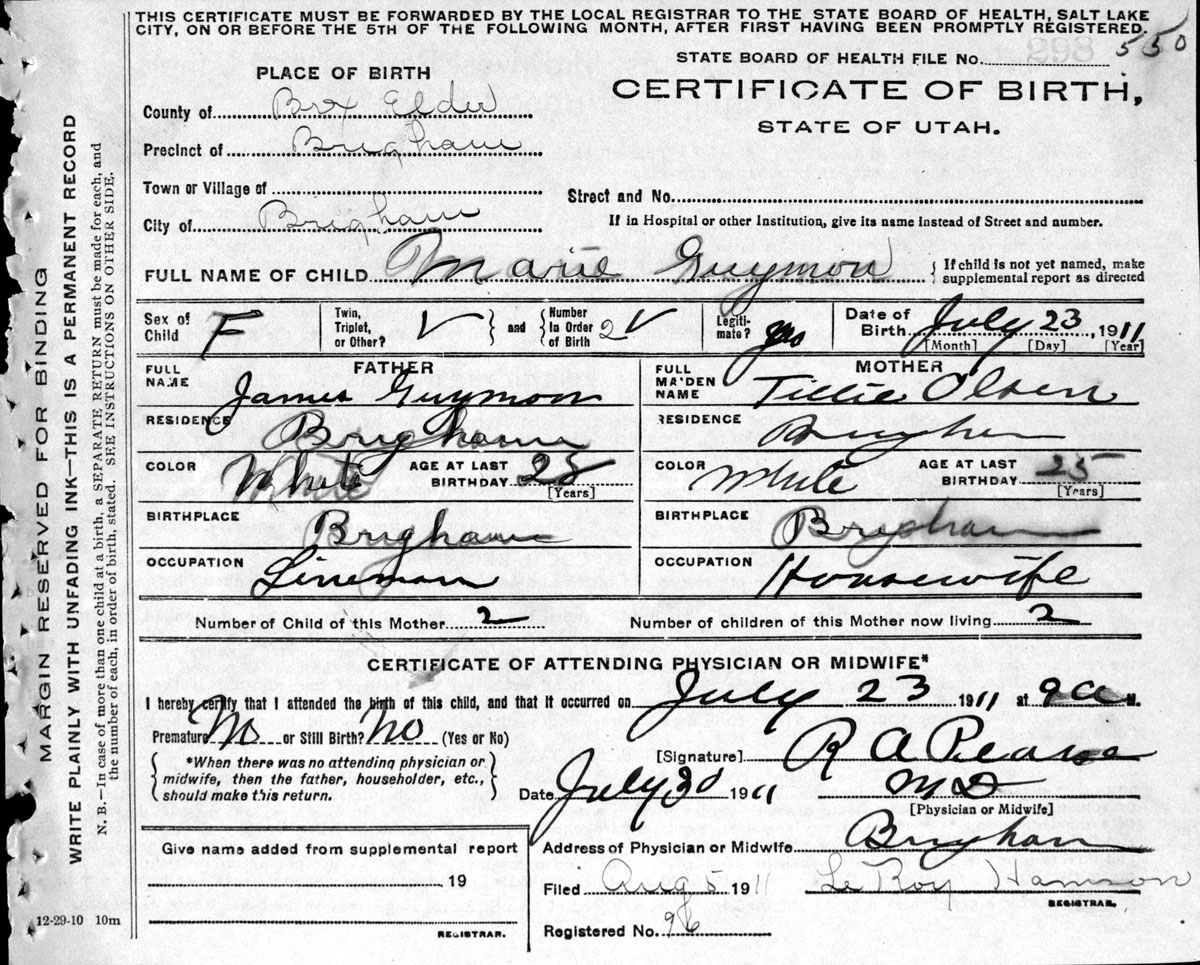 THIS CERTIFICATE MUST BE FORWARDED BY THE LOCAL REGISTRAR TO THE STATE BOARD OF HEALTH, SALT LAKE
CITY, ON OR BEFORE THE 5TH OF THE FOLLOWING MONTH, AFTER FIRST HAVING BEEN PROMPTLY REGISTERED.
STATE BOARD OF HEALTH FILE No. 550
CERTIFICATE OF BIRTH,
STATE OF UTAH.
PLACE OF BIRTH
County of Box Elder
Precinct of Brigham
Town or Village of
City of Brigham
Street and No.
If in Hospital or other Institution, give its name instead of Street and number.
FULL NAME OF CHILD Marie Guymon { If child is not yet named, make
supplemental report as directed
Sex of Child F Twin, Triplet, or Other? V } and { Number In Order of Birth 2 V Legiti-mate? yes Date of Birth July 23, 1911
[Month] [Day] [Year]
FATHER
FULL NAME James Guymon
RESIDENCE Brigham
COLOR White AGE AT LAST BIRTHDAY 25
[Years]
BIRTHPLACE Brigham
OCCUPATION Lineman
MOTHER
FULL MAIDEN NAME Tillie Olsen
RESIDENCE Brigham
COLOR White AGE AT LAST BIRTHDAY 25
[Years]
BIRTHPLACE Brigham
OCCUPATION Housewife
Number of Child of this Mother 2 Number of children of this Mother now living 2
CERTIFICATE OF ATTENDING PHYSICIAN OR MIDWIFE*
I hereby certify that I attended the birth of this child, and that it occurred on July 23 1911 at 9 a M.
Premature No or Still Birth? No (Yes or No)
*When there was no attending physician or
midwife, then the father, householder, etc.,
should make this return.
[Signature] R A Pearse
Date July 30 1911 M D
[Physician or Midwife]
Address of Physician or Midwife Brigham
Filed Aug 5 1911 Le Roy Hamson
REGISTRAR.
Registered No. 96
Give name added from supplemental report
19
REGISTRAR.
12-29-10 10m
MARGIN RESERVED FOR BINDING
WRITE PLAINLY WITH UNFADING INK—THIS IS A PERMANENT RECORD
N. B.—In case of more than one child at a birth, a SEPARATE RETURN must be made for each, and
the number of each, in order of birth, stated. SEE INSTRUCTIONS ON OTHER SIDE.